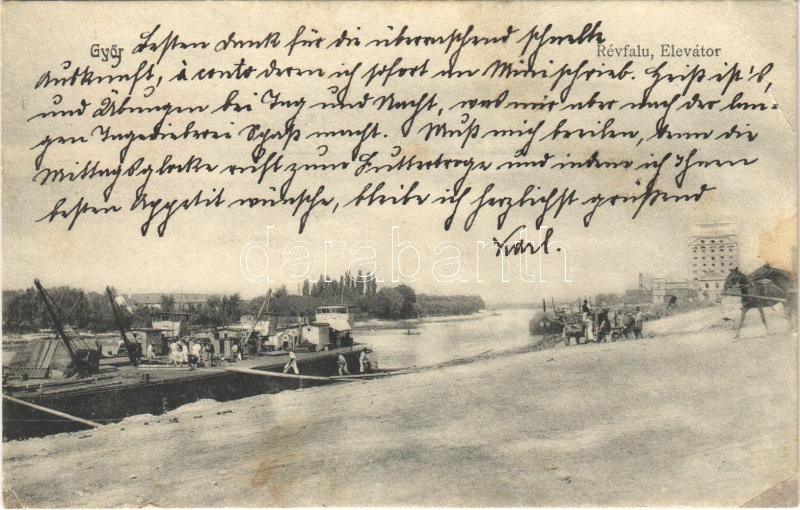 Győr
Révfalu, Elevátor
Besten Dank für die überraschend schnelle
Auskunft, à conto deren ich sofort an Mini schrieb. Heiß ist's,
und Übungen bei Tag und Nacht, was mir aber nach der lan-
gen Tagedieberei Spaß macht. Muß mich beeilen, denn die
Mittagsglocke ruft zum Futtertroge und indem ich Ihnen
besten Appetit wünsche, bleibe ich herzlichst grüßend
Karl.
darabanth